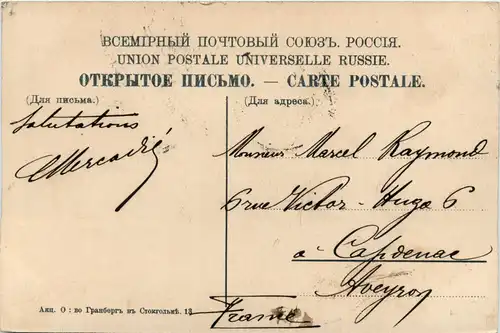 ВСЕМІРНЫЙ ПОЧТОВЫЙ СОЮЗЪ. РОССІЯ.
UNION POSTALE UNIVERSELLE RUSSIE.
ОТКРЫТОЕ ПИСЬМО. — CARTE POSTALE.
(Для письма.)
(Для адреса.)
Salutations
Mercadié
Monsieur Marcel Raymond
6 rue Victor-Hugo 6
à Capdenac
Aveyron
France
Акц. О : во Гранбергъ въ Стокгольмѣ. 13